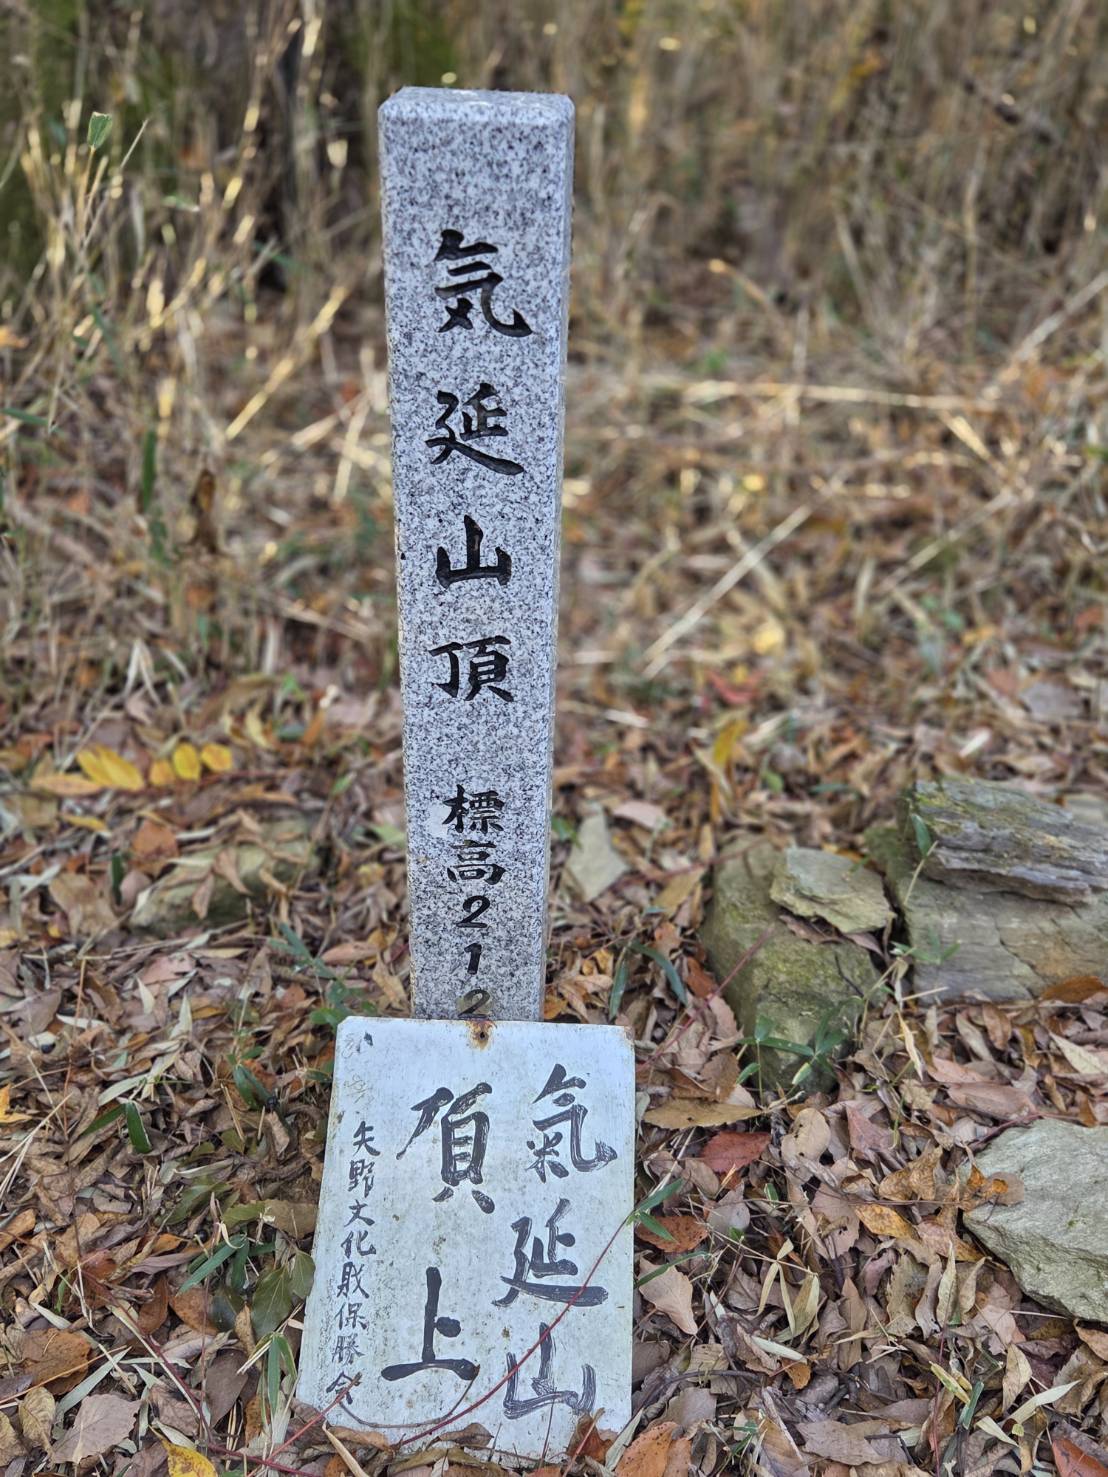 気延山頂
標高212
氣延山
頂上
矢野文化財保勝会